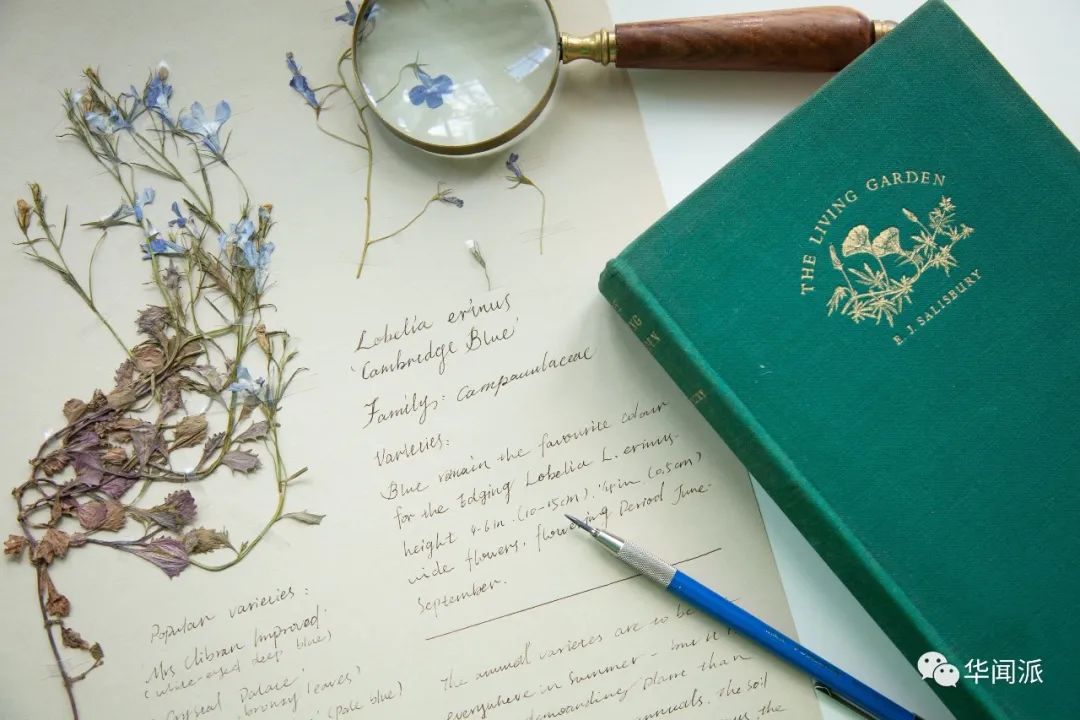 Lobelia erinus
'Cambridge Blue'
Family: Campanulaceae
Varieties:
Blue remain the favourite colour
for the Edging Lobelia L. erinus.
height 4-6 in. (10-15cm). 1/4 in. (0.5cm)
wide flowers. flowering Period June-
September.
Popular varieties:
Mrs Clibran Improved.
(white-eyed deep blue)
Crystal Palace
leaves)
(pale blue)
The annual varieties are to be
everywhere in Summer - but it
demanding plant than
annuals. the soil
the
THE LIVING GARDEN
E. J. SALISBURY
华闻派